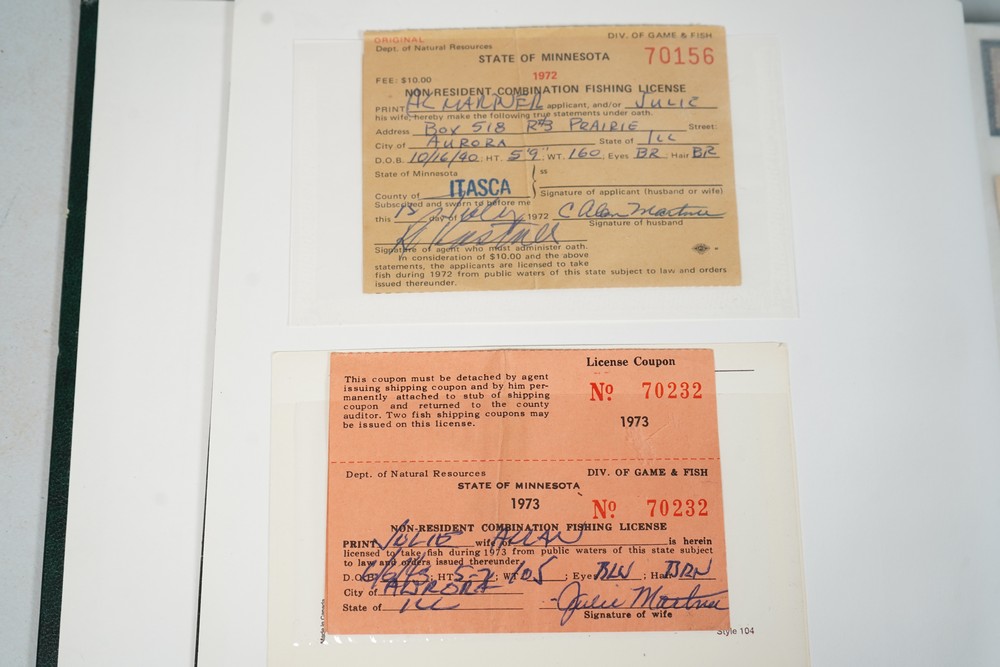 ORIGINAL
DIV. OF GAME & FISH
Dept. of Natural Resources
STATE OF MINNESOTA
70156
1972
FEE: $10.00
NON-RESIDENT COMBINATION FISHING LICENSE
PRINT AL applicant, and/or JULIE
his wife, hereby make the following true statements under oath.
Address BOX 518 R#3 PRAIRIE Street:
City of AURORA State of ILL
D.O.B. 10/16/40 HT. 5'9" WT. 160 Eyes BR Hair BR
State of Minnesota
ss
County of ITASCA
Signature of applicant (husband or wife)
Subscribed and sworn to before me
this 13 day of July, 1972
Signature of husband
Signature of agent who must administer oath.
In consideration of $10.00 and the above
statements, the applicants are licensed to take
fish during 1972 from public waters of this state subject to law and orders
issued thereunder.
License Coupon
This coupon must be detached by agent
issuing shipping coupon and by him per-
manently attached to stub of shipping
coupon and returned to the county
auditor. Two fish shipping coupons may
be issued on this license.
No 70232
1973
Dept. of Natural Resources
DIV. OF GAME & FISH
STATE OF MINNESOTA
1973
No 70232
NON-RESIDENT COMBINATION FISHING LICENSE
PRINT JULIE wife of ALLAN is herein
licensed to take fish during 1973 from public waters of this state subject
to law and orders issued thereunder.
D.O.B. HT. 5-2 WT. 105; Eyes BLU; Hair BRN
City of AURORA
State of ILL
Julie
Signature of wife
Made in Canada
Style 104